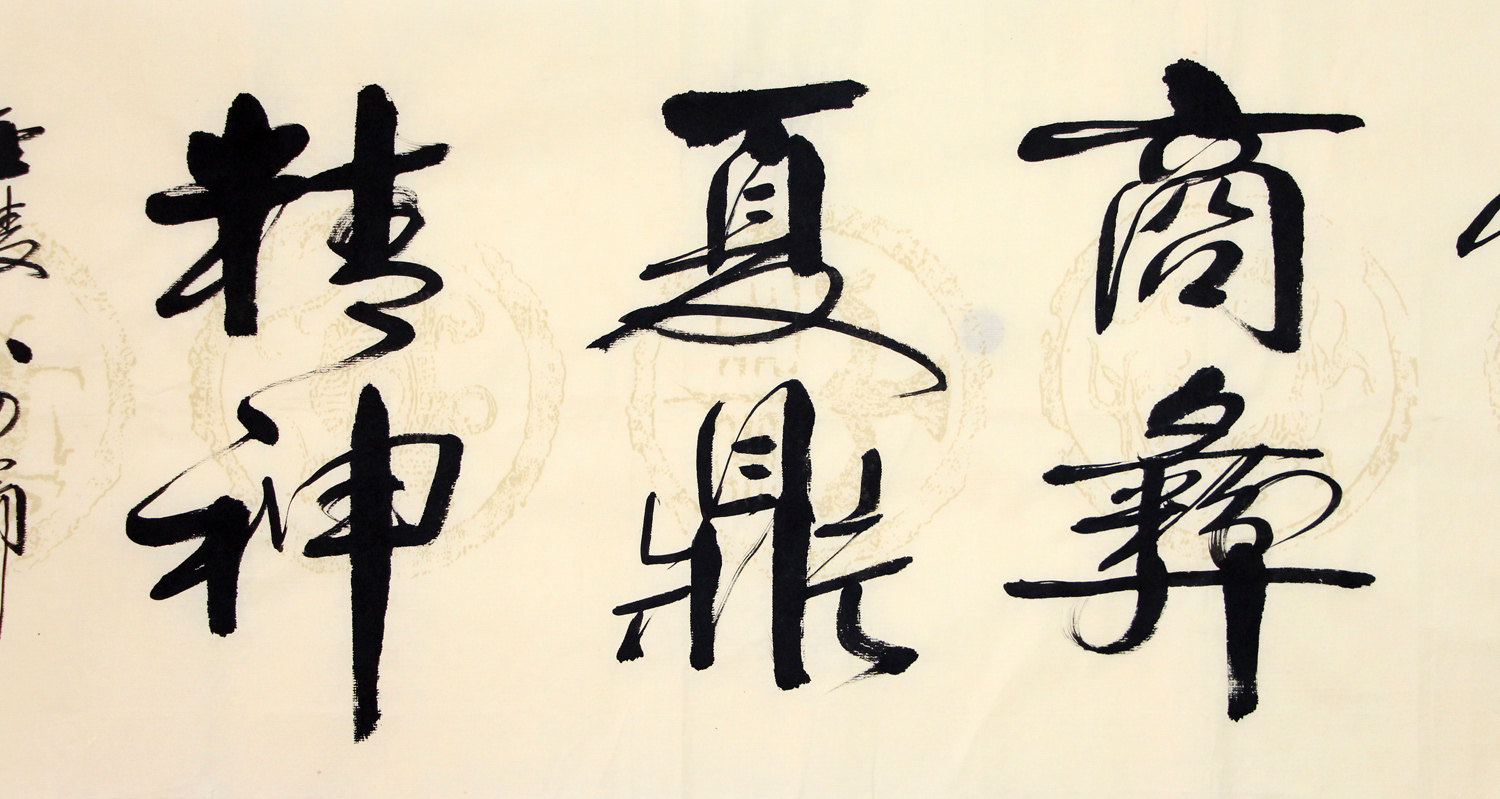 商彝
夏鼎
精神